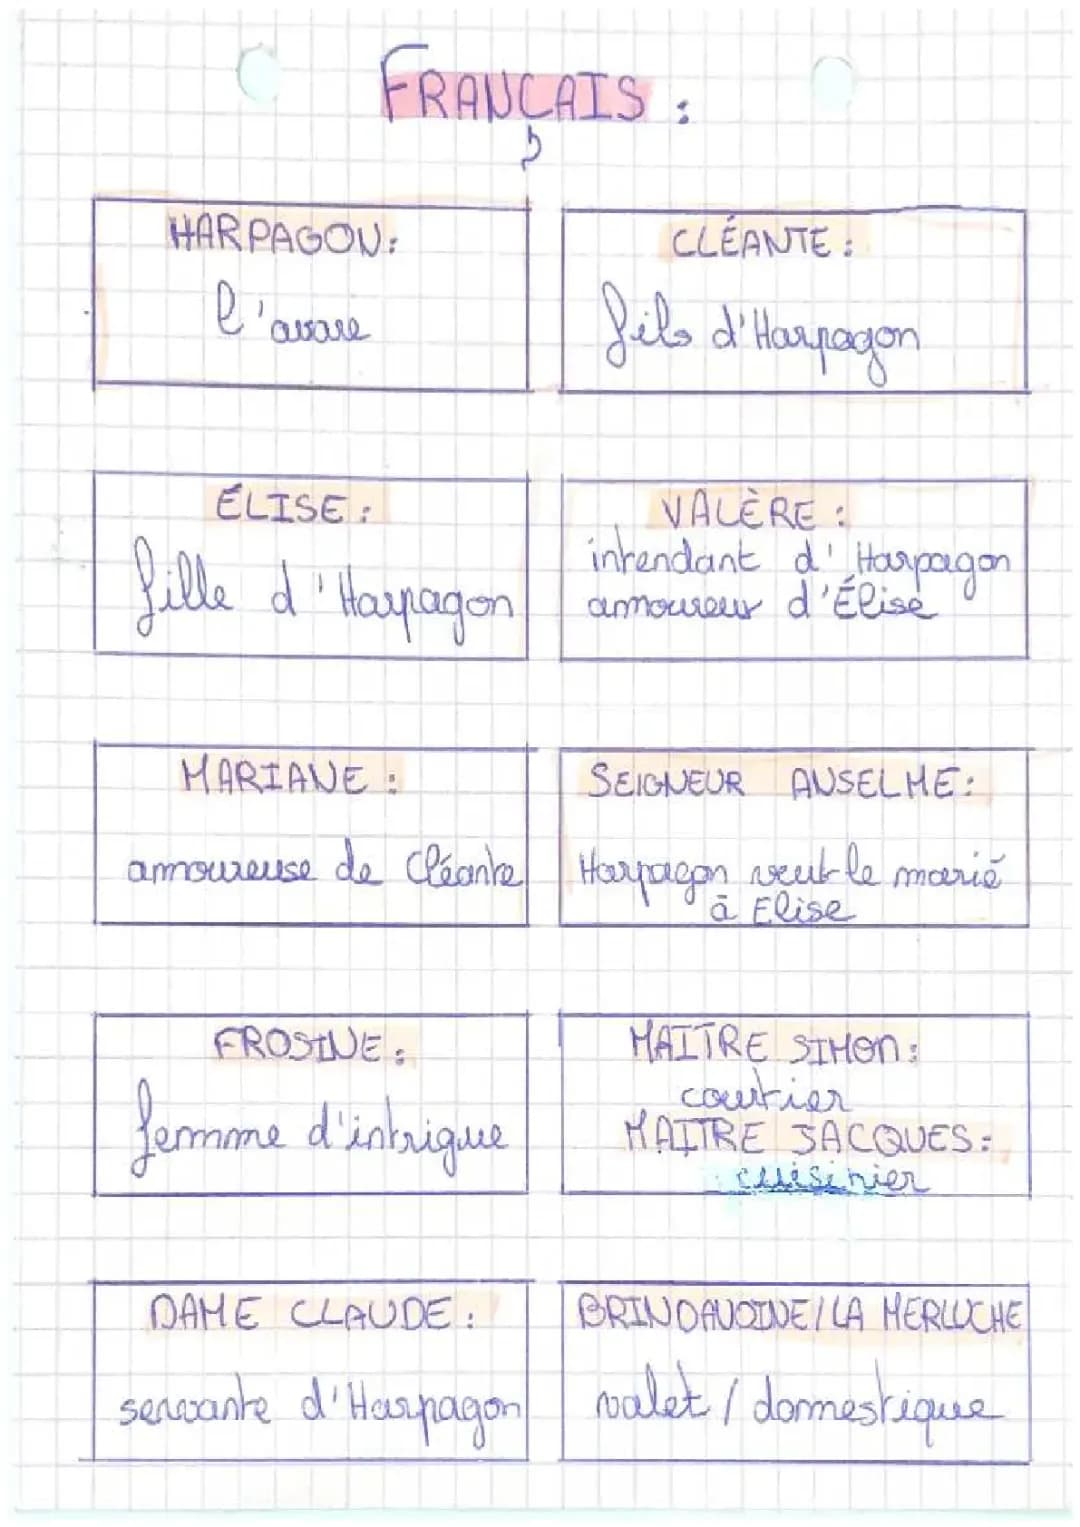 FRANÇAIS :
HARPAGON:
l'avare
CLÉANTE :
fils d'Harpagon
ÉLISE :
fille d'Harpagon
VALÈRE :
intendant d'Harpagon
amoureux d'Élise
MARIANE :
amoureuse de Cléante
SEIGNEUR ANSELME:
Harpagon veut le marié
à Elise
FROSINE :
femme d'intrigue
MAITRE SIMON :
courtier
MAITRE JACQUES :
cuisinier
DAME CLAUDE :
servante d'Harpagon
BRINDAVOINE/LA MERLUCHE
valet / domestique